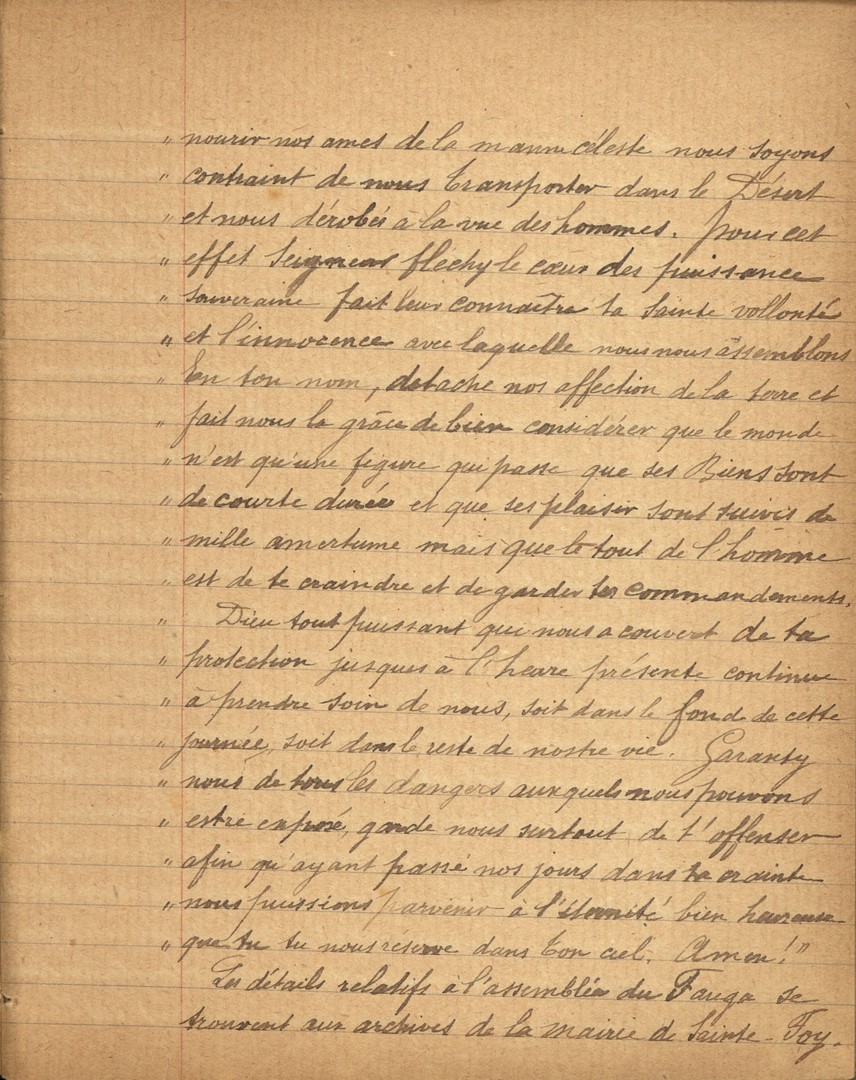 " nourir nos ames de la manne céleste nous soyons
" contraint de nous transporter dans le Désert
" et nous dérobés à la vue des hommes. pour cet
" effet Seigneur fléchy le cœur des puissance
" souveraine fait leur connaître ta Sainte vollonté
" et l'innocence avec laquelle nous nous assemblons
" En ton nom, detache nos affection de la terre et
" fait nous la grâce de bien considérer que le monde
" n'est qu'une figure qui passe que ses Biens sont
" de courte durée et que ses plaisir sont suivis de
" mille amertume mais que le tout de l'homme
" est de te craindre et de garder tes commandements.
" Dieu tout puissant qui nous a couvert de ta
" protection jusques à l'heure présente continue
" à prendre soin de nous, soit dans le fond de cette
" journée, soit dans le reste de nostre vie. Garanty
" nous de tous les dangers aux quels nous pouvons
" estre exposé, garde nous surtout de t'offenser
" afin qu'ayant passé nos jours dans ta crainte
" nous puissions parvenir à l'éternité bien heureuse
" que tu tu nous réserve dans ton ciel. Amen! "
Les détails relatifs à l'assemblée du Fauga se
trouvent aux archives de la mairie de Sainte-Foy.